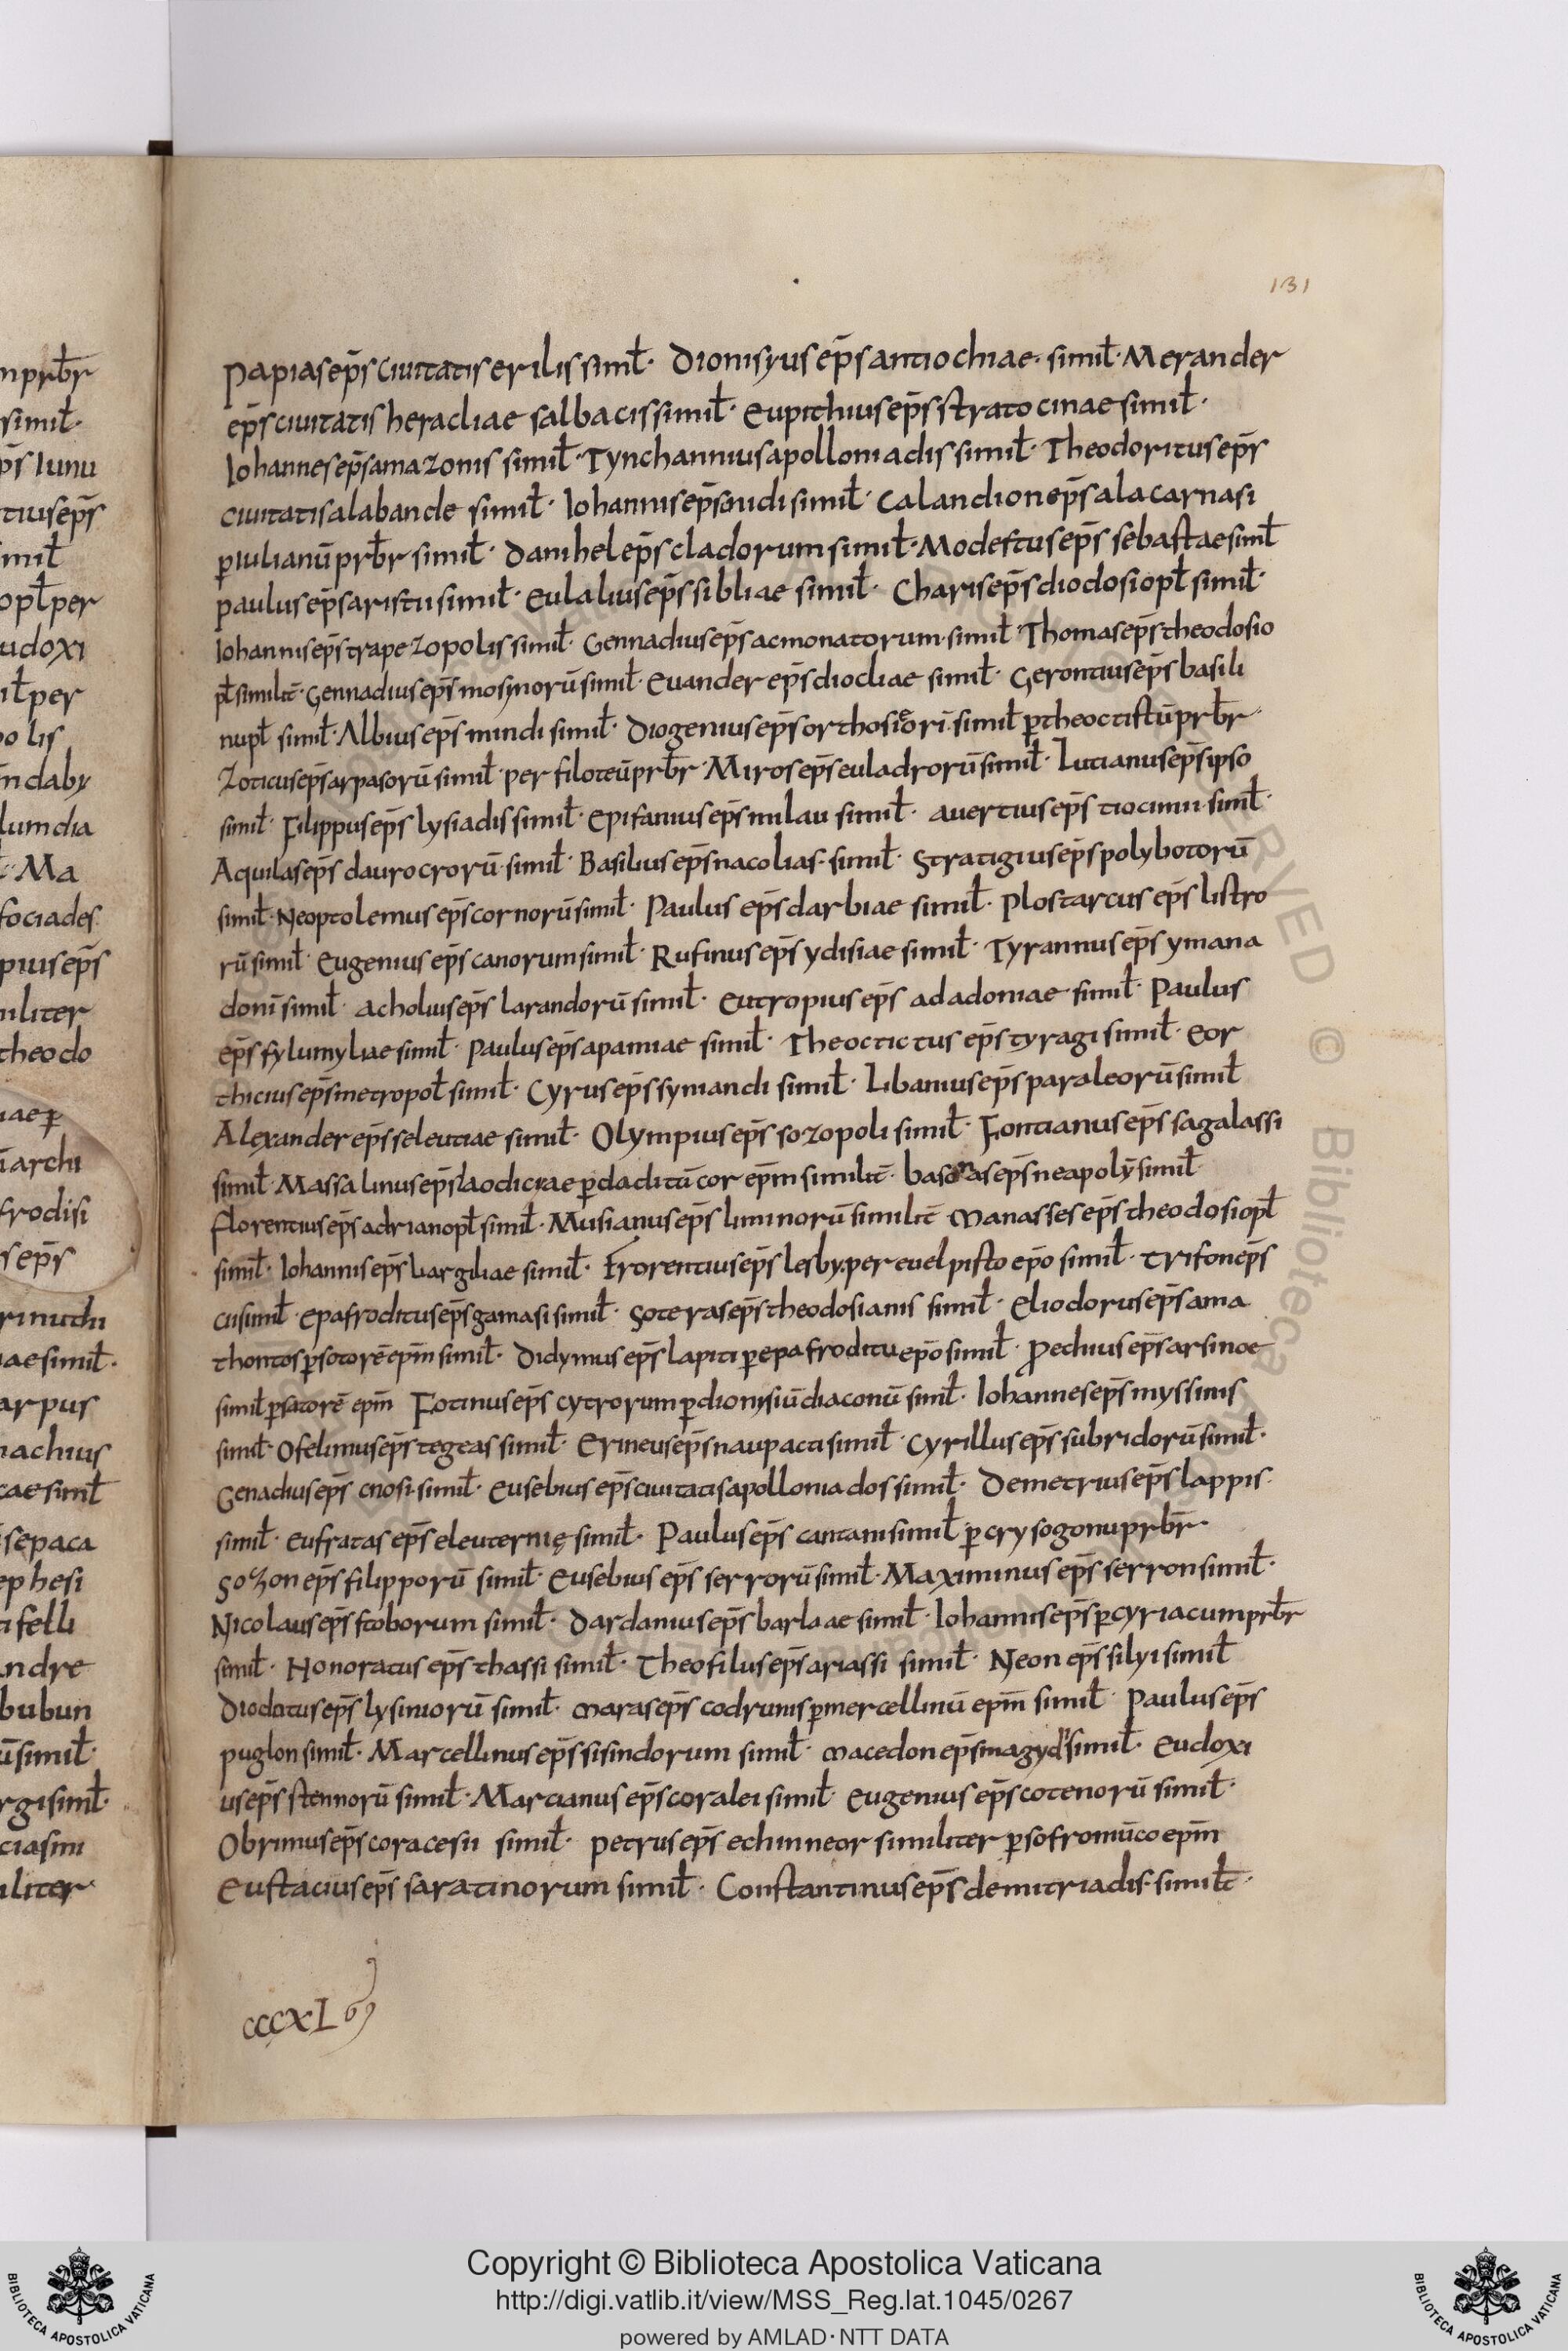 131
papias ep̄s ciuitatis erilis simil̄· Dionisyus ep̄s antiochiae· simil̄· Merander
ep̄s ciuitatis heracliae salbacis simil̄· eupithius ep̄s stratocinae simil̄·
Iohannes ep̄s amazonis simil̄· Tynchannius apolloniadis simil̄· Theodoritus ep̄s
ciuitatis alabande simil̄· Iohannis ep̄s nidi simil̄· Calandion ep̄s alacarnasi
ꝑ iulianū prb̄r simil̄· Danihel ep̄s cladorum simil̄· Modestus ep̄s sebastae simil̄
paulus ep̄s aristii simil̄· eulalius ep̄s sibliae simil̄· Charis ep̄s diodosiopl̄ simil̄·
Iohannis ep̄s trapezopolis simil̄· Gennadius ep̄s acmonatorum· simil̄· Thomas ep̄s theodosio
pl̄ similit̄· Gennadius ep̄s mosynorū simil̄· Euander ep̄s diocliae simil̄· Gerontius ep̄s basili
nupl̄ simil̄· Albius ep̄s mindi simil̄· Diogenius ep̄s orthosieori· simil̄ ꝑ theoctistū prb̄r·
Zoticus ep̄s arpasorū simil̄· per filoteū prb̄r· Miros ep̄s euladrorū simil̄· Lucianus ep̄s ipso
simil̄· Filippus ep̄s lysiadis simil̄· Epifanius ep̄s milau simil̄· auertius ep̄s tiocinii· simil̄·
Aquilas ep̄s daurocrorū· simil̄· Basilius ep̄s nacolias· simil̄· Stratigius ep̄s polybotorū
simil̄· Neoptolemus ep̄s cornorū simil̄· Paulus ep̄s darbiae simil̄· Plostarcus ep̄s listro
rū simil̄· Eugenius ep̄s canorum simil̄· Rufinus ep̄s ydisiae simil̄· Tyrannus ep̄s ymana
donī simil̄· acholius ep̄s larandorū simil̄· Eutropius ep̄s adadoniae simil̄· Paulus
ep̄s fylumyliae simil̄· Paulus ep̄s apamiae simil̄· Theoctictus ep̄s tyragi simil̄· Eor
thicius ep̄s metropol̄ simil̄· Cyrus ep̄s symandi simil̄· Libanius ep̄s paraleorū simil̄
Alexander ep̄s seleutiae simil̄· Olympius ep̄s sozopoli simil̄· Fontianus ep̄s sagalassi
simil̄· Massalinus ep̄s laodiciae ꝑ daditū cor ep̄m similit̄· ep̄s neapolȳ simil̄
florentius ep̄s adrianopl̄ simil̄· Musianus ep̄s liminorū similit̄ Manasses ep̄s theodosiopl̄
simil̄· Iohannis ep̄s bargiliae simil̄· Frorentius ep̄s lesby· per euelpisto ep̄o simil̄· Trifon ep̄s
cii simil̄· epafroditus ep̄s gamasi simil̄· Soteras ep̄s theodosianis simil̄· Eliodorus ep̄s ama
thontos ꝑ sotorē ep̄m simil̄· Didymus ep̄s lapiti ꝑ epafroditu ep̄o simil̄· Pechius ep̄s arsinoe
simil̄ ꝑ satorē ep̄m Fotinus ep̄s cytrorum ꝑ dionisiū diaconū simil̄· Iohannes ep̄s myssinis
simil̄· Ofelimus ep̄s tegeas simil̄· Erineus ep̄s naupacti simil̄· Cyrillus ep̄s subridorū simil̄·
Genadius ep̄s cnosi· simil̄· Eusebius ep̄s ciuitatis apolloniados simil̄· Demetrius ep̄s lappis·
simil̄· Eufratas ep̄s eleuternię simil̄· Paulus ep̄s cantani simil̄ ꝑ crysogonu prb̄r·
Sozon ep̄s filipporū simil̄· Eusebius ep̄s serrorū simil̄· Maximinus ep̄s serron simil̄·
Nicolaus ep̄s stoborum simil̄· Dardanius ep̄s barlaae simil̄· Iohannis ep̄s ꝑ cyriacum prb̄r
simil̄· Honoratus ep̄s thassi simil̄· Theofilus ep̄s ariassi simil̄· Neon ep̄s silyi simil̄
ep̄s lysiniorū simil̄· Maras ep̄s codrunis ꝑ mercellinū ep̄m simil̄· Paulus ep̄s
puglon simil̄· Marcellinus ep̄s sisindorum simil̄· Macedon ep̄s simil̄· Eudoxi
us ep̄s stennorū simil̄· Marcianus ep̄s coralei simil̄· Eugenius ep̄s cotenorū simil̄·
Obrimus ep̄s coracesii simil̄· Petrus ep̄s echinneor similiter ꝑ sofroniū coep̄m
Eustacius ep̄s saratinorum simil̄· Constantinus ep̄s demitriadis· simil̄t·
cccxL
nprb̄r
simil̄·
p̄s Iunu
tius ep̄s
imil̄
opl̄ per
udoxi
il̄ per
polis
ndaby
lum dia
Ma
fociades
pius ep̄s
niliter
theodo
iae ꝑ
iarchi
frodisi
s ep̄s
rinuthi
iae simil̄·
arpus
nachius
cae simil̄
sepaca
ephesi
felli
andre
bubun
ū simil̄·
rgi simil̄·
ciasini
iliter
Copyright © Biblioteca Apostolica Vaticana
http://digi.vatlib.it/view/MSS_Reg.lat.1045/0267
powered by AMLAD·NTT DATA
BIBLIOTECA APOSTOLICA VATICANA
BIBLIOTECA APOSTOLICA VATICANA